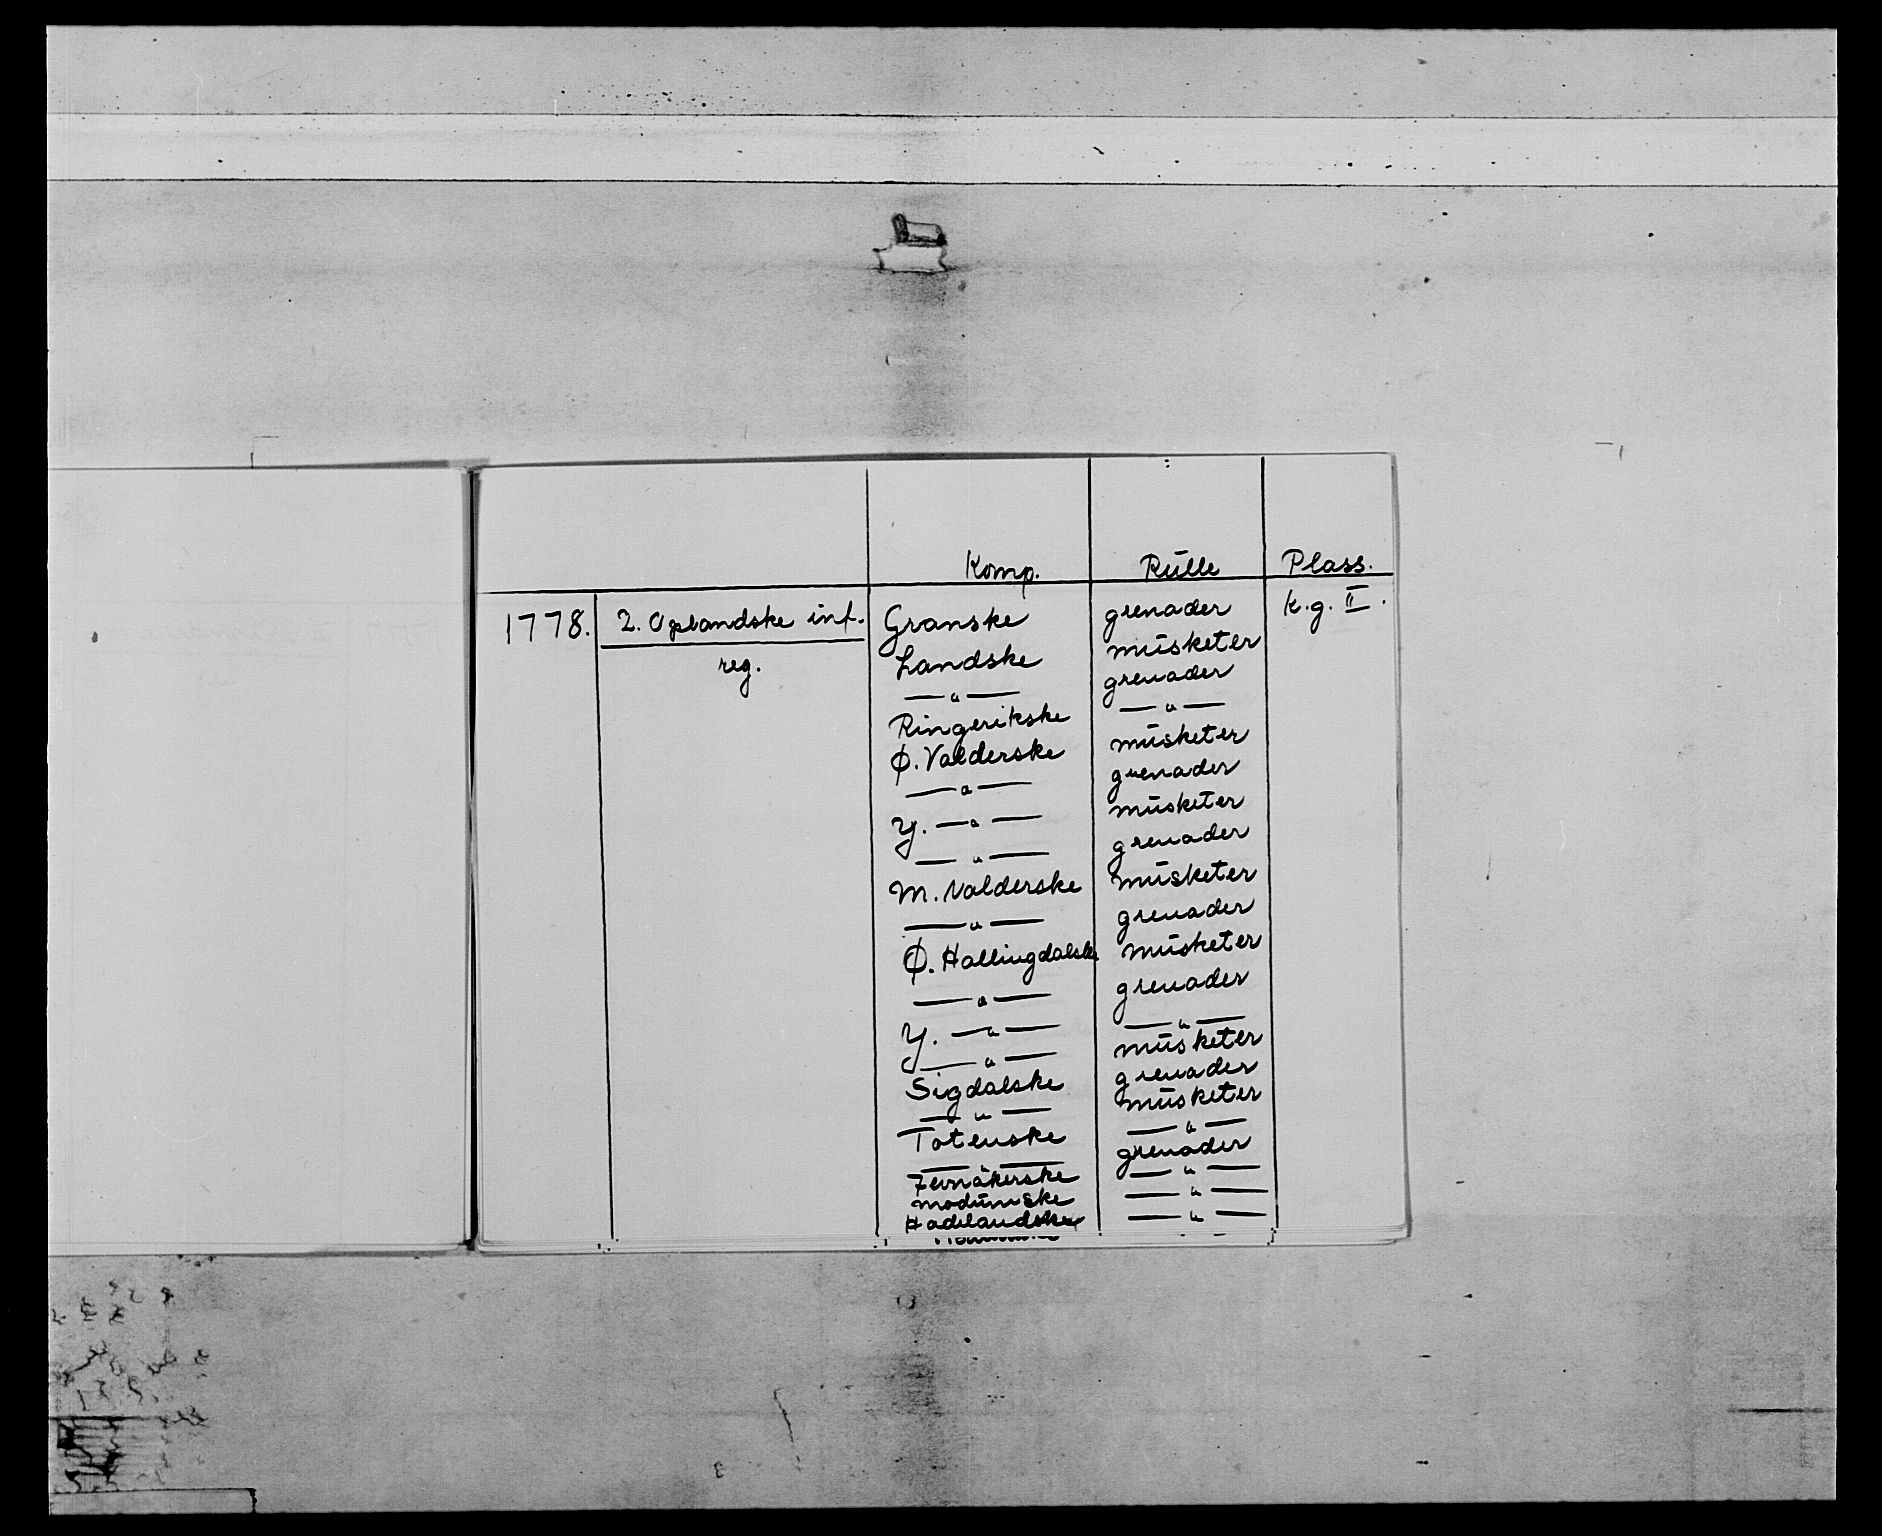 Komp. Rülle Plass.
1778. 2. Oplandske inf. Granske grenader K.g. II.
reg. Landske müsketer
—"— grenader
Ringerikske —"—
Ø. Valderske müsketer
—"— grenader
Y. —"— müsketer
—"— grenader
M. Valderske müsketer
—"— grenader
Ø. Hallingdalske müsketer
—"— grenader
Y. —"— —"—
—"— müsketer
Sigdalske grenader
—"— müsketer
Totenske —"—
—"— grenader
Jevnåkerske —"—
Modümske —"—
Hadelandske —"—